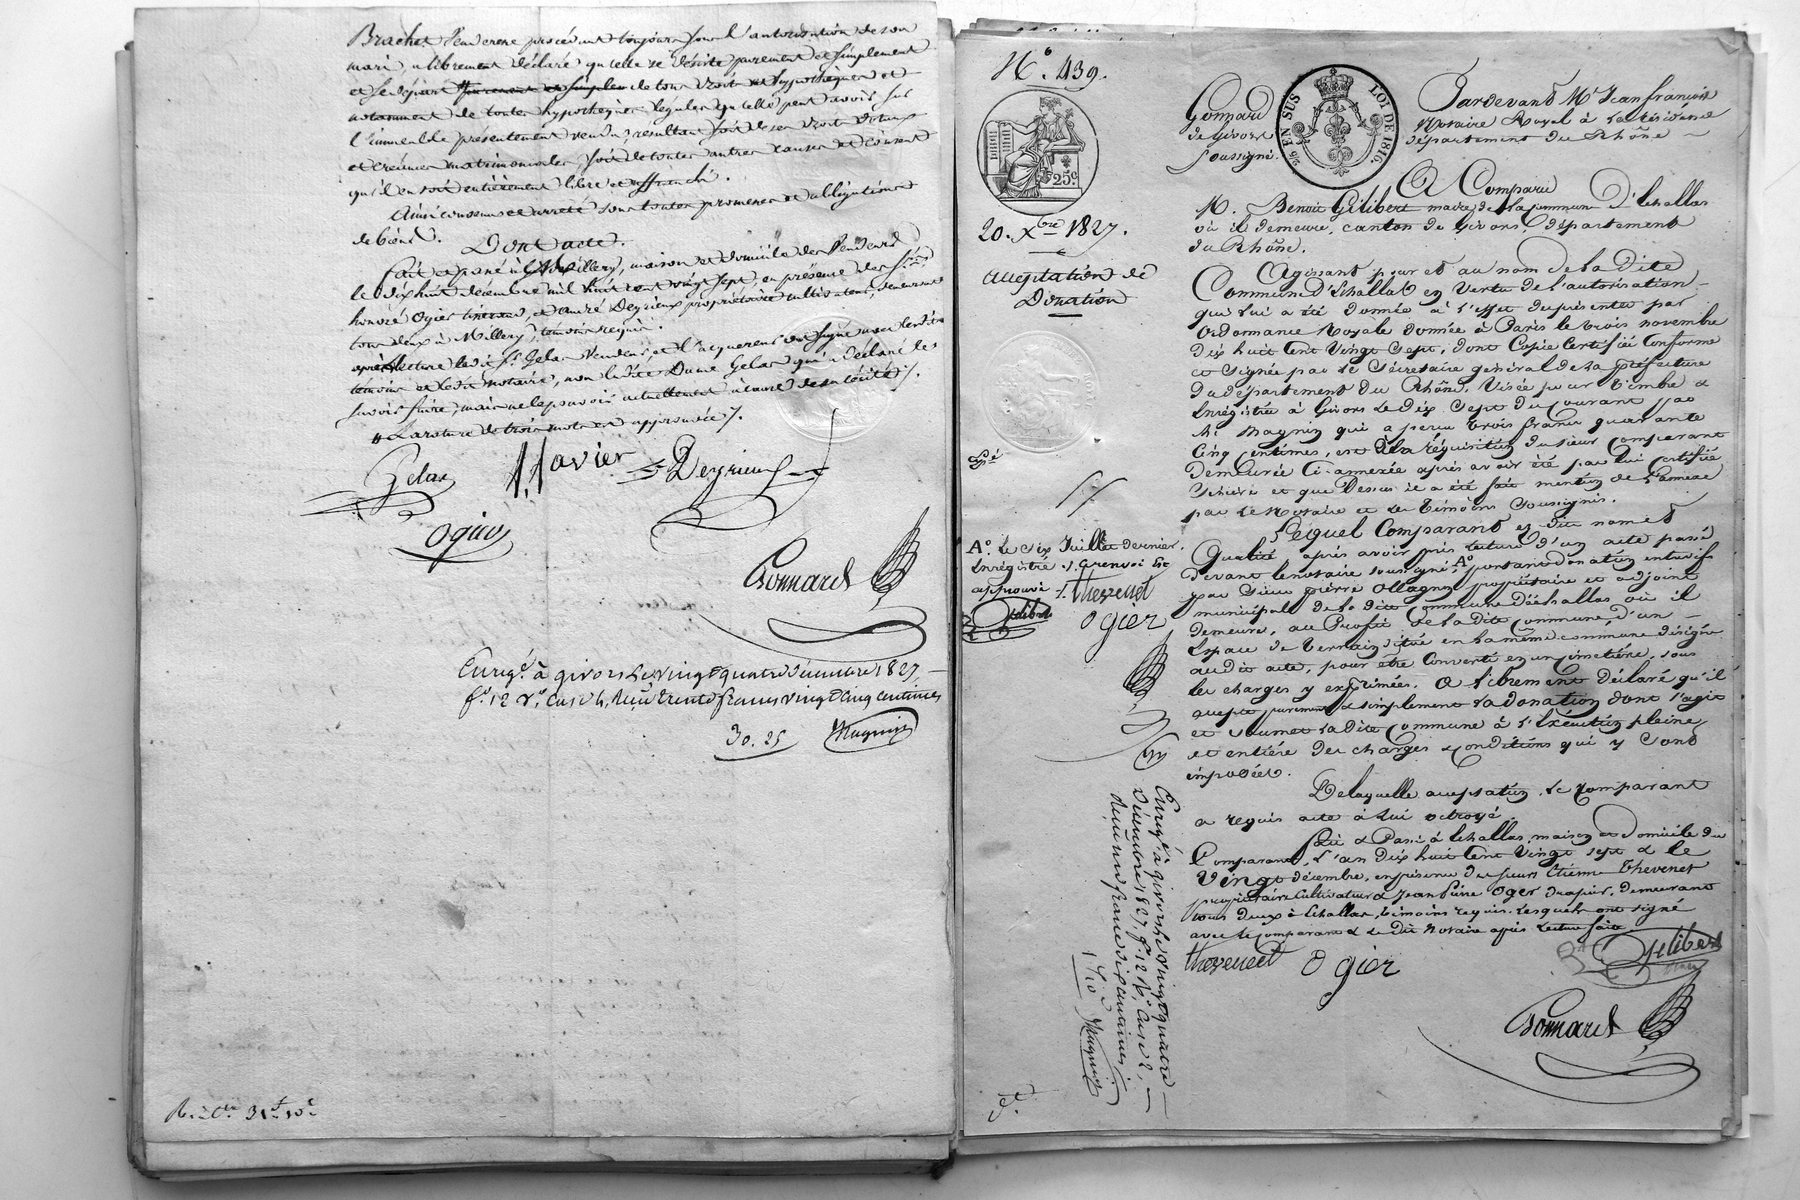 Brachet Venderesse procédant toujours sous l'autorisation de son
mari, a librement déclaré qu'elle se désiste purement et simplement
et se départ purement et simplem de tous droits et hypothèques et
notamment de toutes hypothèques légales qu'elle peut avoir sur
l'immeuble présentement vendu, résultant soit de ses droits dotaux
et créances matrimoniales soit de toutes autres causes et consent
qu'il en soit entièrement libre et affranchi.
Ainsi convenu et arrêté sous toutes promesses et obligations
de biens.
Dont acte.
fait et passé à Millery, maison et domicile des Vendeurs
le dix huit décembre mil huit cent vingt sept, en présence des Srs
honoré Ogier, et André Deyrieux propriétaire cultivateur, demeurant
tous deux à Millery, témoins requis.
après lecture ledit Sr Gelas Vendeur, et l'acquéreur ont signé avec les dits
témoins et le dit notaire, non la dite Dame Gelas qui a déclaré le
savoir faire, mais ne le pouvoir actuellement à cause de sa cécité /.
# La rature de trois mots est approuvée /.
Gelas
Javier
Deyrieux
Ogier
Gonnard
Enregé. à givors le vingt quatre décembre 1827,
fo. 12 Vo. Case 4, Reçu trente francs vingt cinq centimes
30. 25
Magnin
31f 10c
No. 439.
25c
20. Xbre 1827.
Acceptation de
Donation
EN SUS
LOI DE 1816.
Gonnard
de Givors
soussigné.
Pardevant Me Jean François
Notaire Royal à la résidence
département du Rhône
A Comparu
M. Benoit Gilibert maire de la commune d'Echallas
où il demeure, canton de Givors, département
du Rhône.
Agissant pour et au nom de la dite
Commune d'Echallas en Vertu de l'autorisation
qui lui a été donnée à l'effet des présentes par
ordonnance Royale donnée à Paris le trois novembre
dix huit cent Vingt Sept, dont Copie Certifiée Conforme
et signée par le Sécretaire général de la préfecture
du département du Rhône, Visée pour timbre &
Enrégistrée à Givors le dix Sept du courant par
Mr Magnin qui a perçu trois francs quarante
Cinq centimes, est à la réquisition du sieur comparant
demeurée ci-annexée après avoir été par lui Certifiée
Sincère et que Dessus il a été fait mention de l'annexe
par le Notaire et les témoins Soussignés.
Lequel Comparant es dits noms et
Qualité après avoir pris lecture d'un acte passé
devant le notaire soussigné, Ao portant donation entrevifs
par Sieur pierre Ollagnon propriétaire et adjoint
municipal de la dite commune d'échallas où il
demeure, au Profit de la dite commune, d'un
Espace de terrain situé en la même commune désigné
au dit acte, pour etre Converti en un cimetière, sous
les charges y exprimées. A librement déclaré qu'il
accepte purement & simplement la donation dont s'agit
et soumet la dite Commune à l'Exécution pleine
et entière des charges & conditions qui y sont
imposées.
De laquelle acceptation le Comparant
a requis acte à lui octroyé.
fait & Passé à Echallas, maison et domicile du
Comparant, L'an dix huit Cent Vingt sept & le
Vingt décembre, en présence des Sieurs Etienne Thevenet
propriétaire Cultivateur & Jean Pierre Oger, demeurant
tous deux à Echallas, témoins requis. Lesquels ont signé
avec le comparant & le dit Notaire après lecture faite
thevenet Ogier Gilibert
Gonnard
Ao. Le six Juillet dernier.
Enrégistré. /. Ce renvoi est
approuvé /. thevenet
Gilibert Ogier
Enregé. à givors le vingt quatre
décembre 1827. fo. 12 Ro. Case 2,
reçu un franc dix centimes
1f 10c Magnin